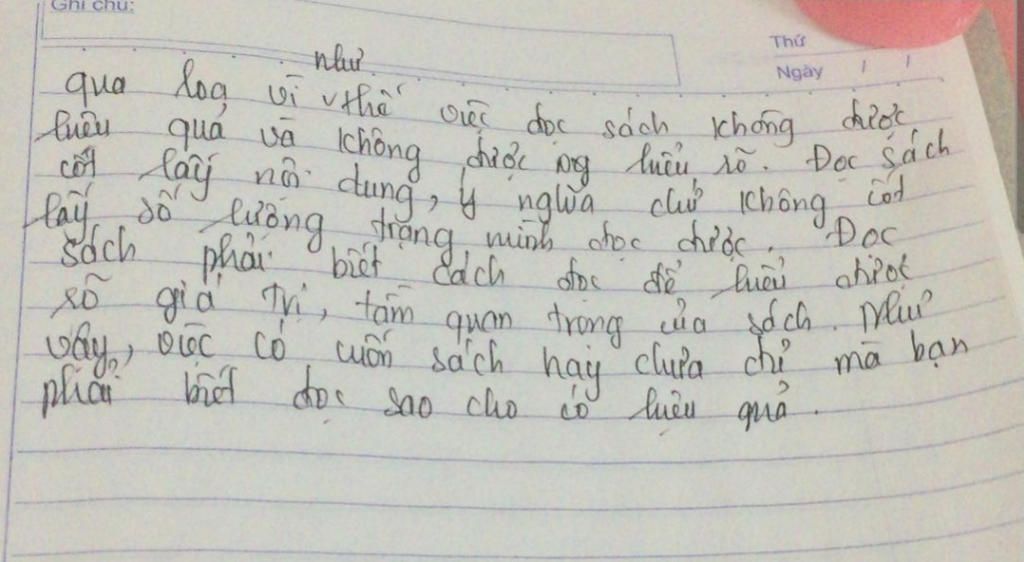 Ghi chú:
Thứ
Ngày / /
như
qua loa, vì v thế việc đọc sách không được
hiệu quả và không được hiểu rõ. Đọc sách
cốt lấy nội dung, ý nghĩa chứ không cốt
lấy số lượng trang mình đọc được. Đọc
sách phải biết cách đọc để hiểu được
rõ giá trị, tầm quan trọng của sách. Như
vậy, việc có cuốn sách hay chưa chỉ mà bạn
phải biết đọc sao cho có hiệu quả.